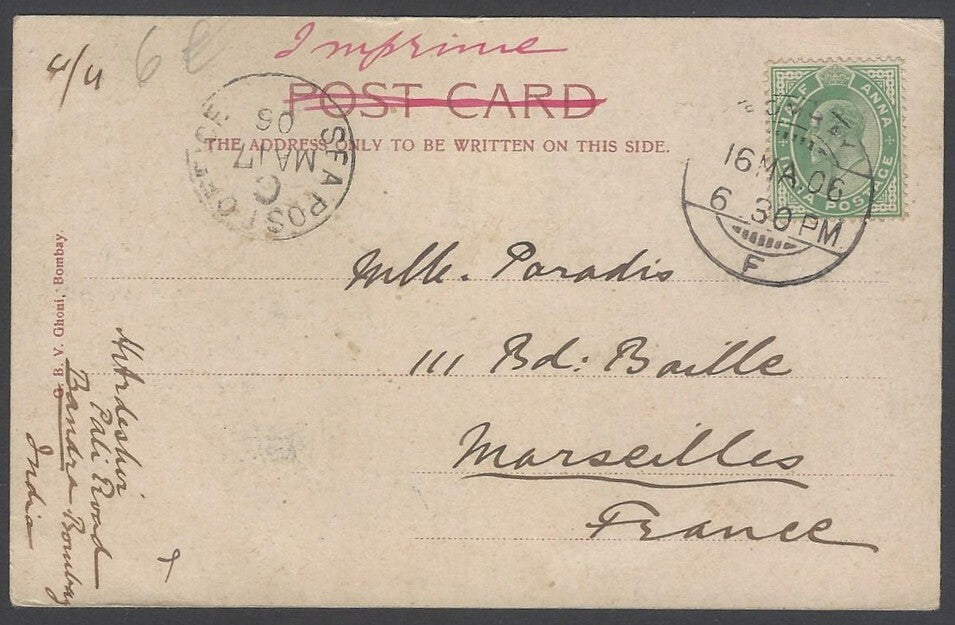 4/4
6
Imprime
POST CARD
THE ADDRESS ONLY TO BE WRITTEN ON THIS SIDE.
SEA POST OFFICE
C
MA 17
06
HALF ANNA
INDIA POSTAGE
16 MA. 06
6.30 PM
F
Mlle. Paradis
111 Bd: Baille
Marseilles
France
B. V. Ghoni, Bombay.
Ardeshir
Pali Road
Bandra Bombay
India